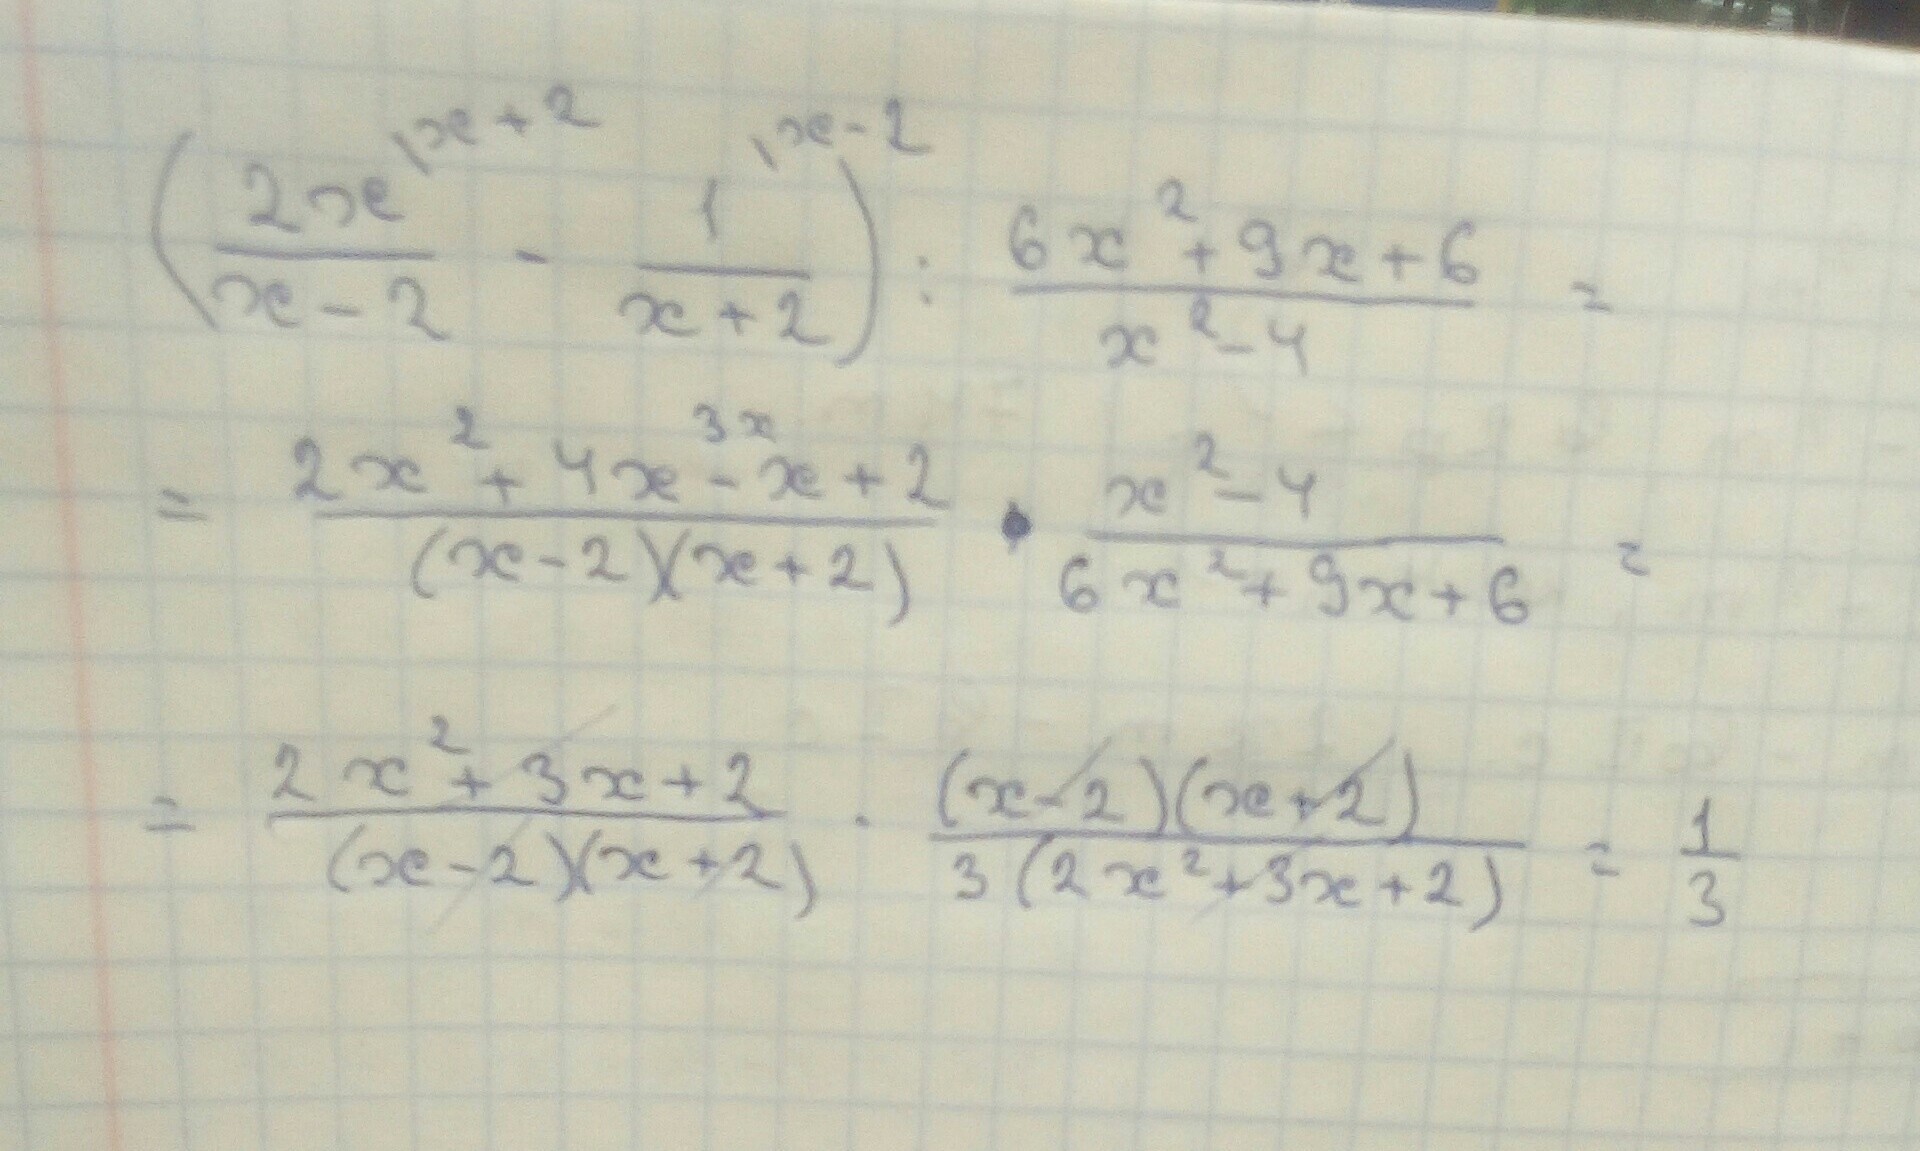 (2x^{\x+2}/(x-2) - 1^{\x-2}/(x+2)) : (6x²+9x+6)/(x²-4) =
= (2x²+4x-x+2)/((x-2)(x+2)) · (x²-4)/(6x²+9x+6) = 3x
= (2x²+3x+2)/((x-2)(x+2)) · ((x-2)(x+2))/(3(2x²+3x+2)) = 1/3